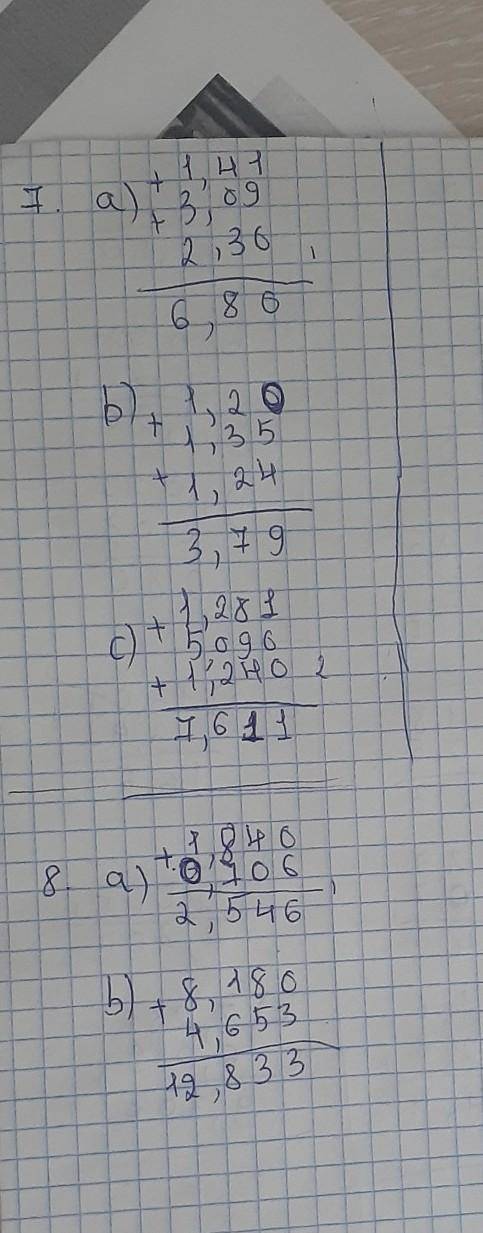 + 1,41
7. a) + 3,09
2,36 ,
6,86
b) + 1,20
1,35
+ 1,24
3,79
+ 1,281
c) 5,096
+ 1,240 2
7,611
+ 1,840
8. a) 0,706 ,
2,546
b) + 8,180
4,653
12,833